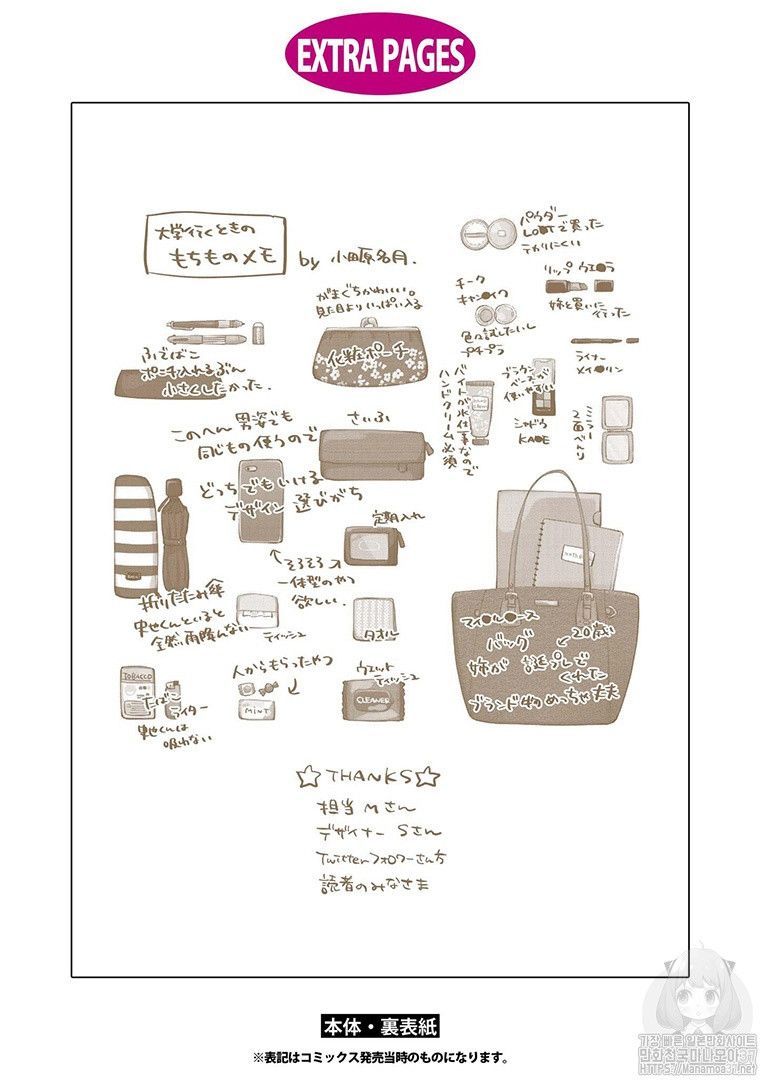 EXTRA PAGES
大学行くときの
もちものメモ
by 小田原名月.
パウダー
LOOTで買った
テカリにくい
リップ ウエ●ラ
姉と買いに
行った
チーク
キャン●イク
色々試したいし
プチプラ
ライナー
メイ●リン
ブラウン
ベースが
使いやすい
シャドウ
KA●E
ミラー
2面べんり
がまぐちかわいい。
見た目よりいっぱい入る
化粧ポーチ
バイトが水仕事なので
ハンドクリーム必須
ふでばこ
ポーチ入れるぶん
小さくしたかった.
このへん 男姿でも
同じもの使うので
どっちでもいける
デザイン 選びがち
さいふ
定期入れ
そろそろ
一体型のやつ
欲しい.
折りたたみ傘
史也くんといると
全然雨降んない
ティッシュ
タオル
TOBACCO
たばこ
ライター
史也くんは
吸わない
人からもらったやつ
MINT
ウエット
ティッシュ
CLEANER
マイ●ル●ース
バッグ
20歳
姉が 誕プレで
くれた
ブランド物 めっちゃ丈夫
☆THANKS☆
担当 Mさん
デザイナー Sさん
Twitterフォロワーさん方
読者のみなさま
本体・裏表紙
※表記はコミックス発売当時のものになります。
가장 빠른 일본만화사이트
만화천국마나모아37
HTTPS://MANAMOA37.NET